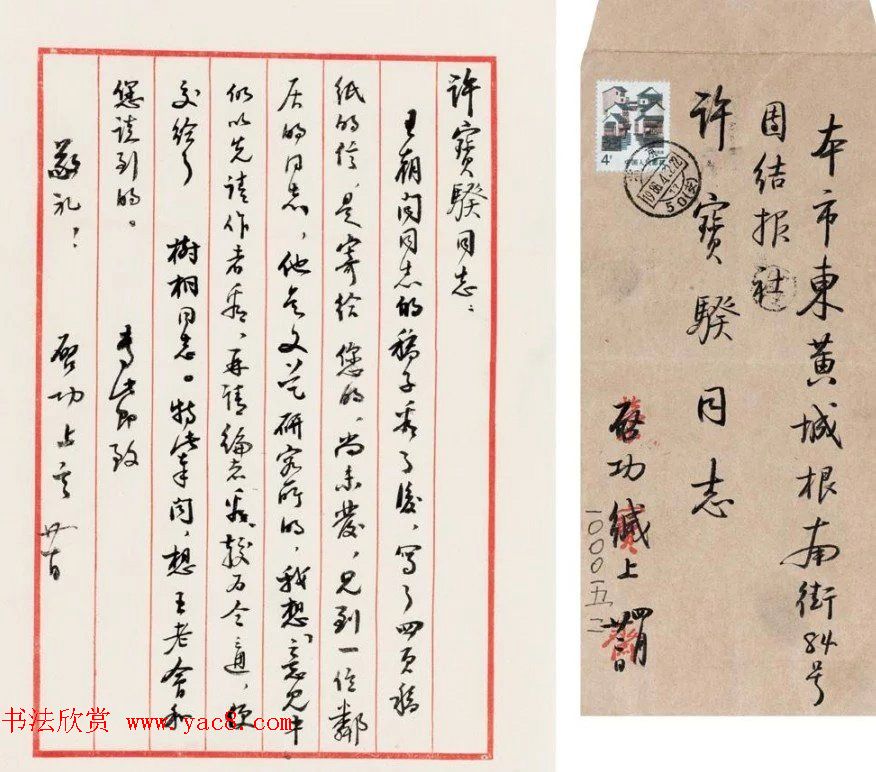 许宝骙同志：
王朝闻同志的稿子看了后，写了四页稿
纸的信，是寄给您的，尚未发，见到一位邻
居的同志，他是文艺研究所的，我想"意见中
仍以先请作者看，再请编者看，较为合适，便
交给了 树桐同志。特此奉闻，想王老会和
您谈到的。 专此即致
敬礼！ 启功上言 廿二日
本市東黄城根南街84号
团结报社
许寶騤同志
启功缄上 四月廿二日
一〇〇〇一五二
中国人民邮政
4分
1986.4.22
书法欣赏 www.yac8.com